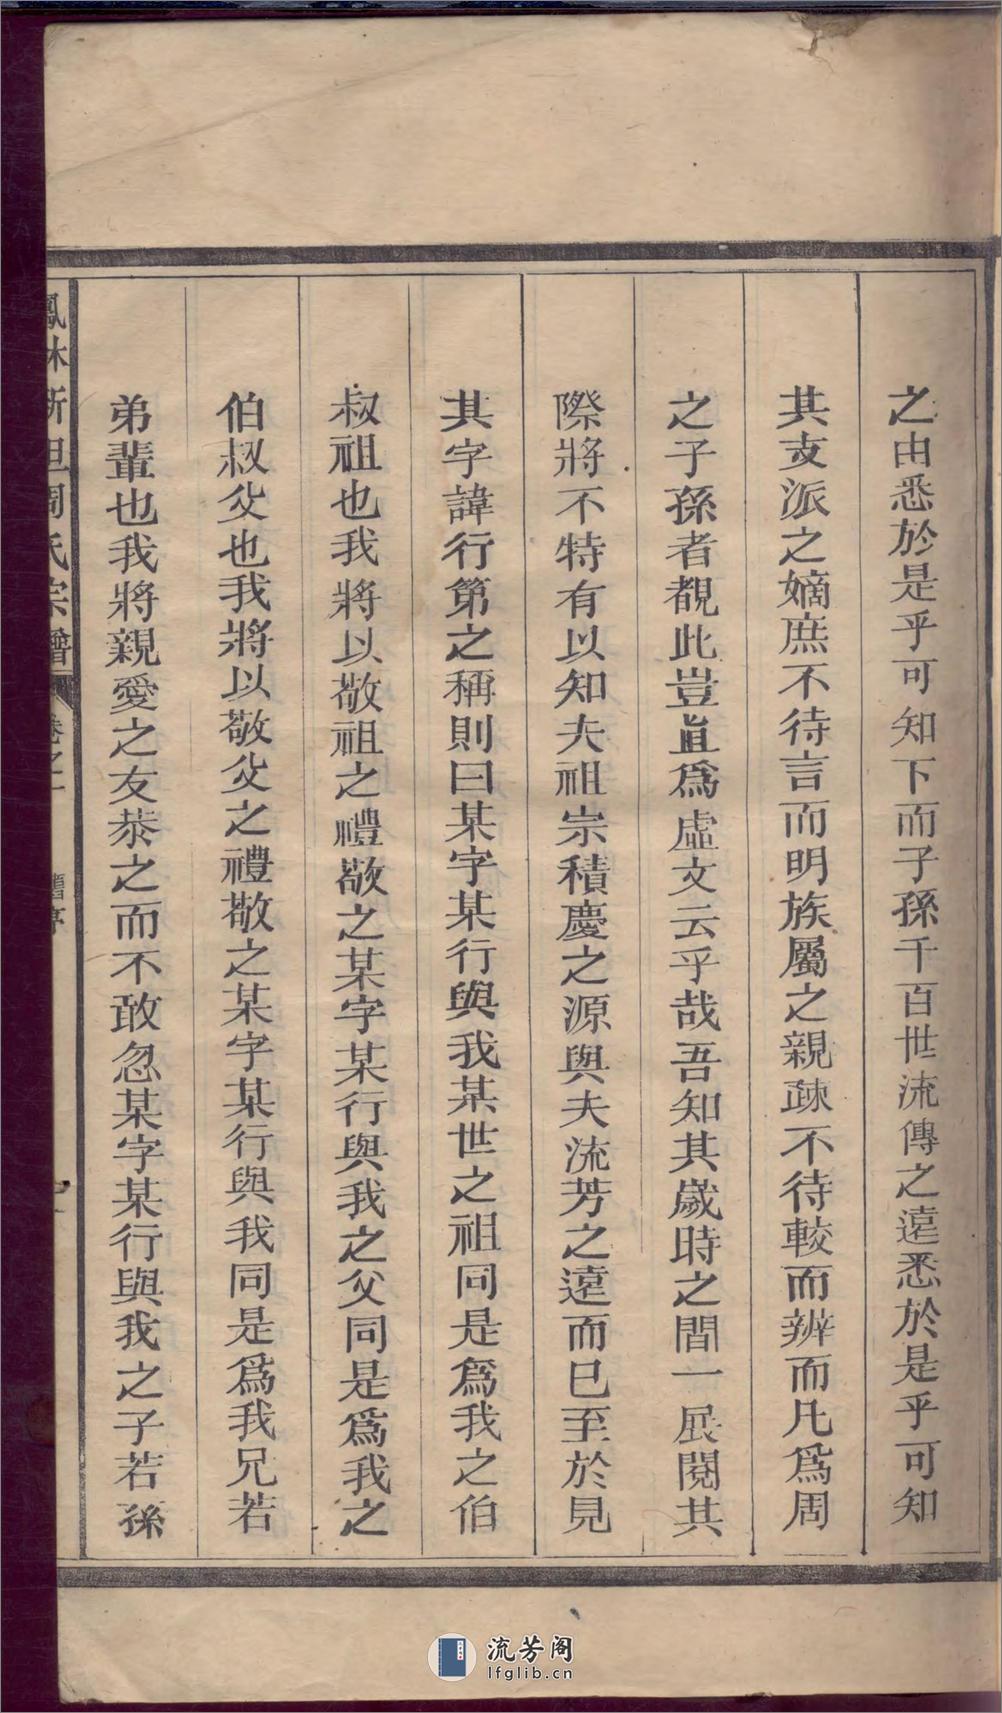 之由悉於是乎可知下而子孫千百世流傳之遠悉於是乎可知
其支派之嫡庶不待言而明族屬之親疎不待較而辨而凡為周
之子孫者覩此豈直為虛文云乎哉吾知其歲時之間一展閱其
際將不特有以知夫祖宗積慶之源與夫流芳之遠而已至於見
其字諱行第之稱則曰某字某行與我某世之祖同是為我之伯
叔祖也我將以敬祖之禮敬之某字某行與我之父同是為我之
伯叔父也我將以敬父之禮敬之某字某行與我同是為我兄若
弟輩也我將親愛之友恭之而不敢忽某字某行與我之子若孫
鳳林新坦周氏宗譜 卷之一 舊序
流芳阁
lfglib.cn